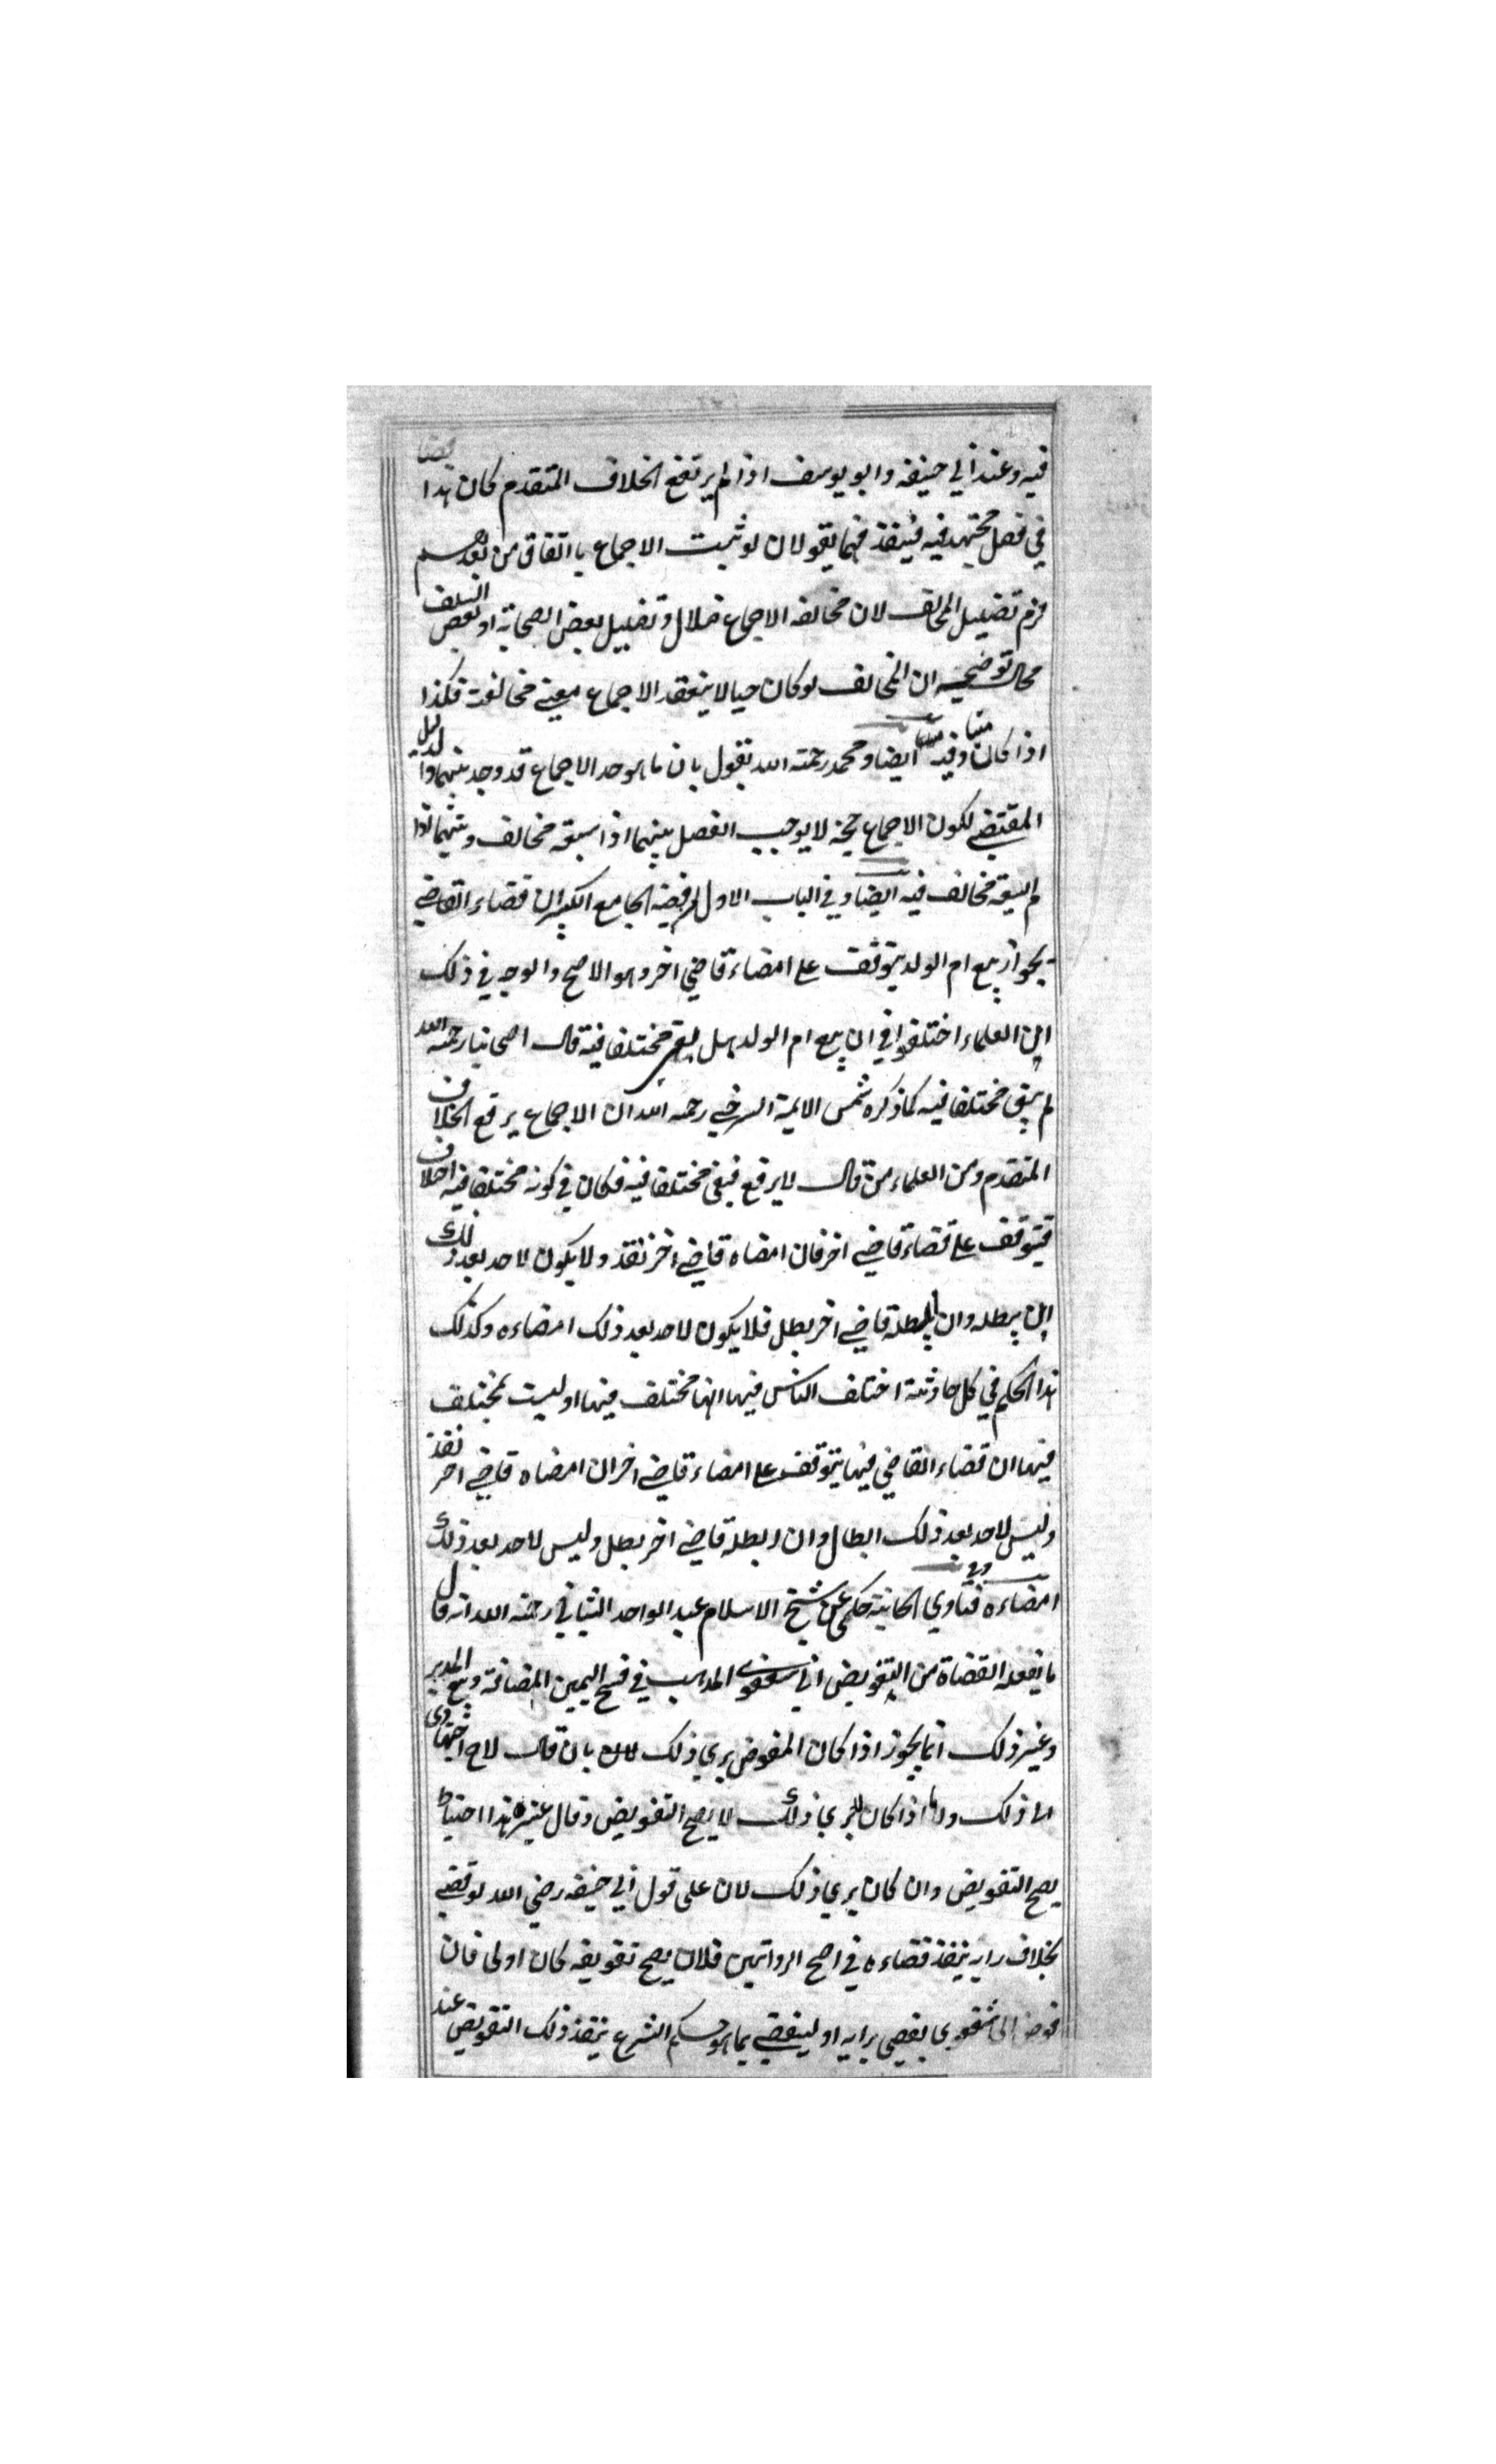 فيه وعند ابي حنيفه وابو يوسف اذا لم يرتفع الخلاف المتقدم كان هذا قضا
في فصل مجتهد فيه فينفذ فهما يقولان لو ثبت الاجماع باتفاق من بعدهم
لزم تضليل المخالف لان مخالفه الاجماع ضلال وتضليل بعض الصحابة او بعض السلف
محال توضيحه ان المخالف لو كان حيا لا ينعقد الاجماع مع مخالفت فكذا
اذا كان ميتا وفيه ايضا ومحمد رحمته الله يقول بان ما هو حد الاجماع قد وجد بينهما والدليل
المقتضي لكون الاجماع حجة لا يوجب الفصل بينهما اذا سبقه مخالف وبينهما اذا
لم يسبقه مخالف فيه ايضا وفي الباب الاول من اقضية الجامع الكبير ان قضاء القاضي
بجواز بيع ام الولد يتوقف على امضاء قاضي اخر وهو الاصح والوجه في ذلك
ان العلماء اختلفوا في ان بيع ام الولد هل بقي مختلفا فيه قال اصحابنا رحمه الله
لم يبق مختلفا فيه كما ذكره شمس الايمة السرخسي رحمه الله ان الاجماع يرفع الخلاف
المتقدم ومن العلماء من قال لا يرفع فبقي مختلفا فيه فكان في كونه مختلفا فيه اختلاف
فيتوقف على قضاء قاضي اخر فان امضاه قاضي اخر نفذ ولا يكون لاحد بعد ذلك
ان يبطله وان ابطله قاضي اخر بطل فلا يكون لاحد بعد ذلك امضاءه وكذلك
هذا الحكم في كل حادثة اختلف الناس فيها انها مختلف فيها او ليست بمختلف
فيها ان قضاء القاضي فيها يتوقف على امضاء قاضي اخر ان امضاه قاضي اخر نفذ
وليس لاحد بعد ذلك ابطال وان ابطله قاضي اخر بطل وليس لاحد بعد ذلك
امضاءه وفي فتاوي الخانية حكي عن شيخ الاسلام عبد الواحد الشيباني رحمه الله انه قال
ما يفعله القضاة من التفويض الي شفعوي المذهب في فسخ اليمين المضافة وبيع المدبر
وغير ذلك انما يجوز اذا كان المفوض يري ذلك بان قال لاح اجتهادي
الا ذلك اذا كان لا يري ذلك لا يصح التفويض وقال غيره هذا احتياط
يصح التفويض وان كان يري ذلك لان على قول ابي حنيفه رضي الله لو قضي
بخلاف رايه ينفذ قضاءه في اصح الرواتيين فلان يصح تفويضه كان اولى فان
فوض الى شفعوي ليقضي برايه او ليقضي بما هو حكم الشرع ينفذ ذلك التفويض عند